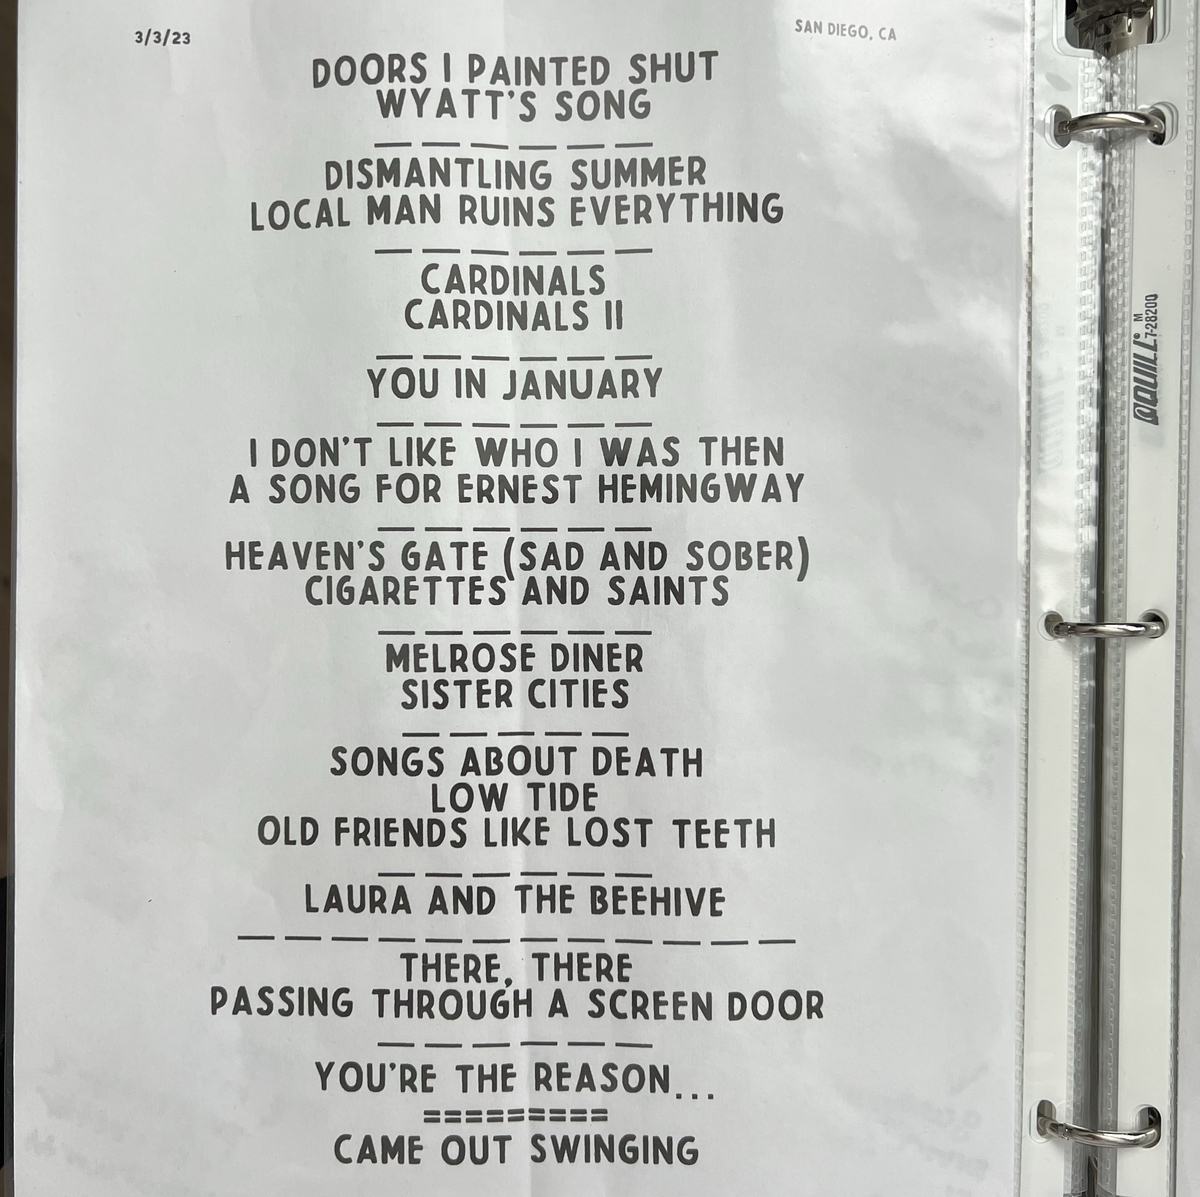 3/3/23
SAN DIEGO, CA
DOORS I PAINTED SHUT
WYATT'S SONG
DISMANTLING SUMMER
LOCAL MAN RUINS EVERYTHING
CARDINALS
CARDINALS II
YOU IN JANUARY
I DON'T LIKE WHO I WAS THEN
A SONG FOR ERNEST HEMINGWAY
HEAVEN'S GATE (SAD AND SOBER)
CIGARETTES AND SAINTS
MELROSE DINER
SISTER CITIES
SONGS ABOUT DEATH
LOW TIDE
OLD FRIENDS LIKE LOST TEETH
LAURA AND THE BEEHIVE
THERE, THERE
PASSING THROUGH A SCREEN DOOR
YOU'RE THE REASON...
=========
CAME OUT SWINGING
QUILL® M
7-28200